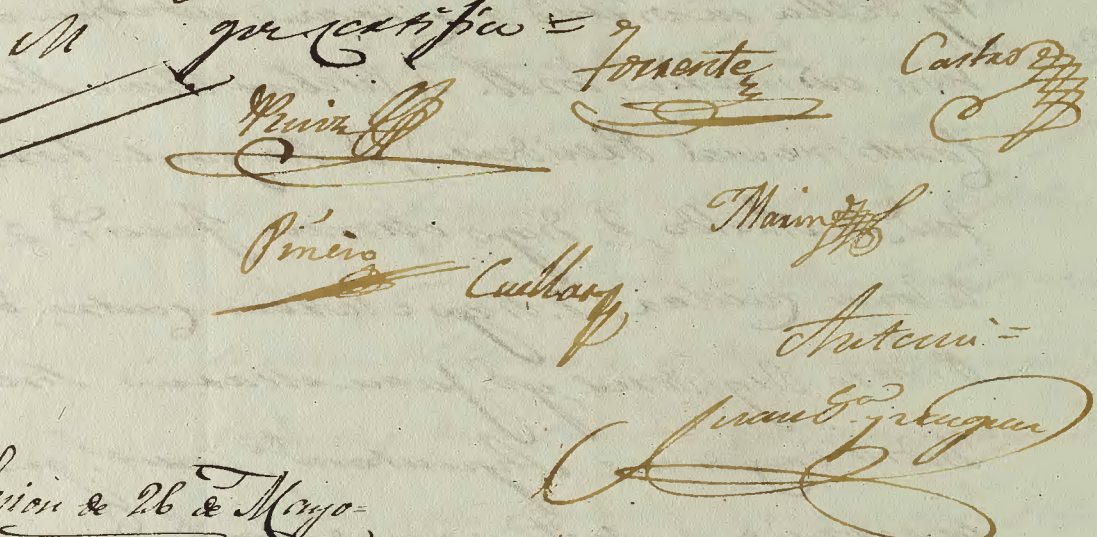 M que certifico =
Ruiz Torrente Castro
Piñero Cuellar Marin
Ante mi =
Juan
de 26 de Mayo =